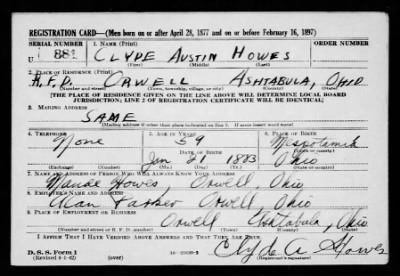 REGISTRATION CARD—(Men born on or after April 28, 1877 and on or before February 16, 1897)
SERIAL NUMBER 1. NAME (Print) ORDER NUMBER
U 881 CLYDE AUSTIN HOWES
(First) (Middle) (Last)
2. PLACE OF RESIDENCE (Print)
R.F.D. ORWELL ASHTABULA, OHIO
(Number and street) (Town, township, village, or city) (County) (State)
[THE PLACE OF RESIDENCE GIVEN ON THE LINE ABOVE WILL DETERMINE LOCAL BOARD
JURISDICTION; LINE 2 OF REGISTRATION CERTIFICATE WILL BE IDENTICAL]
3. MAILING ADDRESS
SAME
(Mailing address if other than place indicated on line 2. If same insert word same)
4. TELEPHONE 5. AGE IN YEARS 6. PLACE OF BIRTH
None 59
DATE OF BIRTH (Town or county)
Jan 21 1883 Ohio
(Exchange) (Number) (Mo.) (Day) (Yr.) (State or country)
7. NAME AND ADDRESS OF PERSON WHO WILL ALWAYS KNOW YOUR ADDRESS
Maude Howes, Orwell, Ohio
8. EMPLOYER'S NAME AND ADDRESS
Orwell, Ohio
9. PLACE OF EMPLOYMENT OR BUSINESS
Orwell Ashtabula, Ohio
(Number and street or R. F. D. number) (Town) (County) (State)
I AFFIRM THAT I HAVE VERIFIED ABOVE ANSWERS AND THAT THEY ARE TRUE.
Clyde A. Howes
D. S. S. Form 1
(Revised 4-1-42) (over) (Registrant's signature)